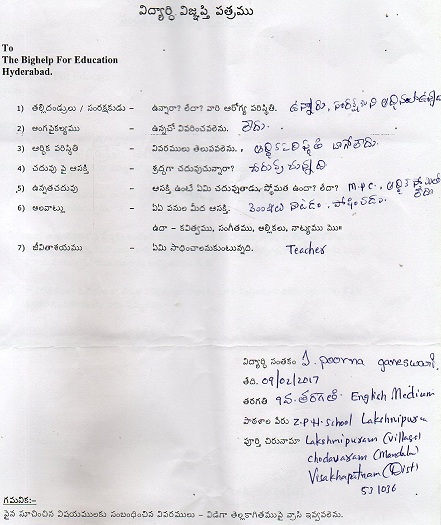 విద్యార్ధి విజ్ఞప్తి పత్రము
To
The Bighelp For Education
Hyderabad.
1) తల్లిదండ్రులు / సంరక్షకుడు - ఉన్నారా? లేదా? వారి ఆరోగ్య పరిస్థితి. ఉన్నారు,
2) అంగవైకల్యము - ఉన్నచో వివరించవలెను. లేదు.
3) ఆర్థిక పరిస్థితి - వివరములు తెలుపవలెను. ఆర్థిక పరిస్థితి బాగోలేదు.
4) చదువు పై ఆసక్తి - శ్రద్ధగా చదువుచున్నారా? చదువుచున్నది
5) ఉన్నతచదువు - ఆసక్తి ఉంటే ఏమి చదువుతాడు, స్థోమత ఉందా? లేదా? M.P.C, ఆర్థిక స్థోమత లేదు
6) అలవాట్లు - ఏఏ పనుల మీద ఆసక్తి.
ఉదా - కవిత్వము, సంగీతము, అల్లికలు, నాట్యము ము॥
7) జీవితాశయము - ఏమి సాధించాలనుకుంటున్నది. Teacher
విద్యార్థి సంతకం J. poorna ganeswari.
తేది. 09/02/2017
తరగతి 9వ. తరగతి English Medium
పాఠశాల పేరు Z.P.H. School Lakshmipuram
పూర్తి చిరునామా Lakshmipuram (village)
chodavaram (Mandal)
Visakhapatnam (Dist)
531036
గమనిక:-
పైన సూచించిన విషయములకు సంబంధించిన వివరములు - విడిగా తెల్లకాగితముపై వ్రాసి ఇవ్వవలెను.